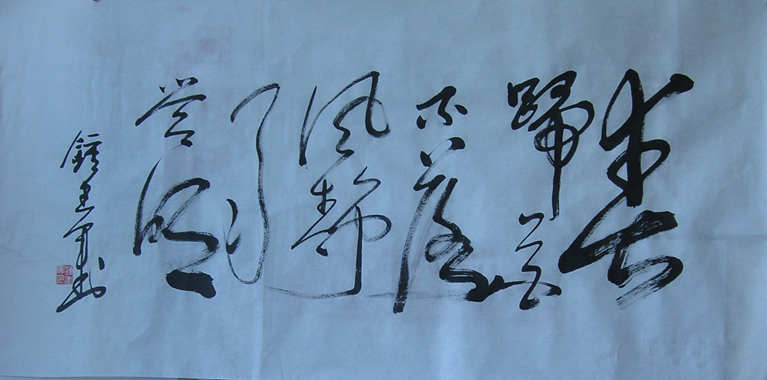 春
歸花
不落
風静
月
常明